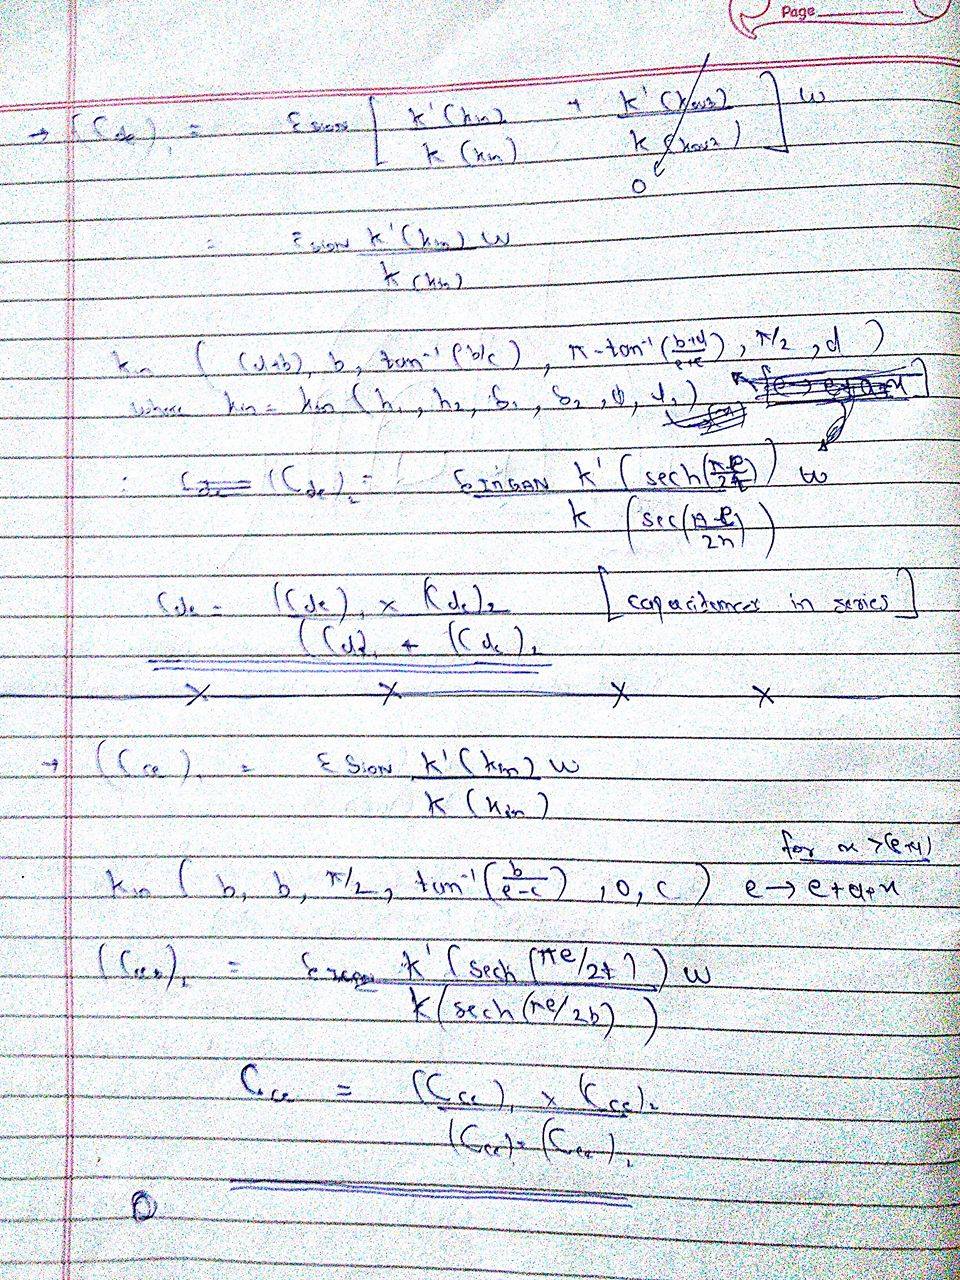 Page
→ (Cde)₁ = ε SiON [ k'(kin) / k(kin) + k'(kou2) / k(kou2) ] w
0
= ε SiON k'(kin) w / k(kin)
kin ( (d+b), b, tan⁻¹(b/c), π-tan⁻¹(b+d/e+c), π/2, d )
where kin = kin (h₁, h₂, δ₁, δ₂, ψ,
∴ (Cde)₂ = ε InGAN k'(sech(πe/2t)) w / k (sec(πe/2h))
Cde = (Cde)₁ × (Cde)₂ / (Cd)₁ + (Cde)₂ [capacitances in series]
× × × ×
→ (Cce)₁ = ε SiON k'(kin) w / k(kin)
for x >(e+d)
kin ( b, b, π/2, tan⁻¹(b/e-c), 0, c ) e → e+d+x
(Cce)₂ = k'(sech(πe/2t)) w / k(sech(πe/2b))
Cce = (Cce)₁ × (Cce)₂ / (Cce)₁ (Cce)₂